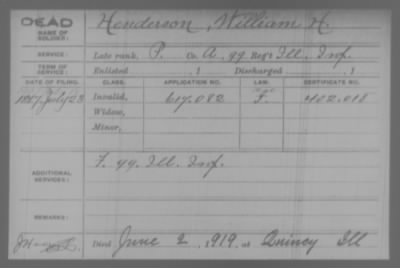 DEAD
NAME OF SOLDIER: Henderson, William H.
SERVICE: Late rank, P. Co. A, 99 Reg't Ill. Inf.
TERM OF SERVICE: Enlisted , 1 Discharged , 1
DATE OF FILING. CLASS. APPLICATION NO. LAW. CERTIFICATE NO.
July 23 Invalid, 617.082 F. 402.018
Widow,
Minor,
ADDITIONAL SERVICES: F. 99. Ill. Inf.
REMARKS:
Died June 2, 1919, at Quincy Ill